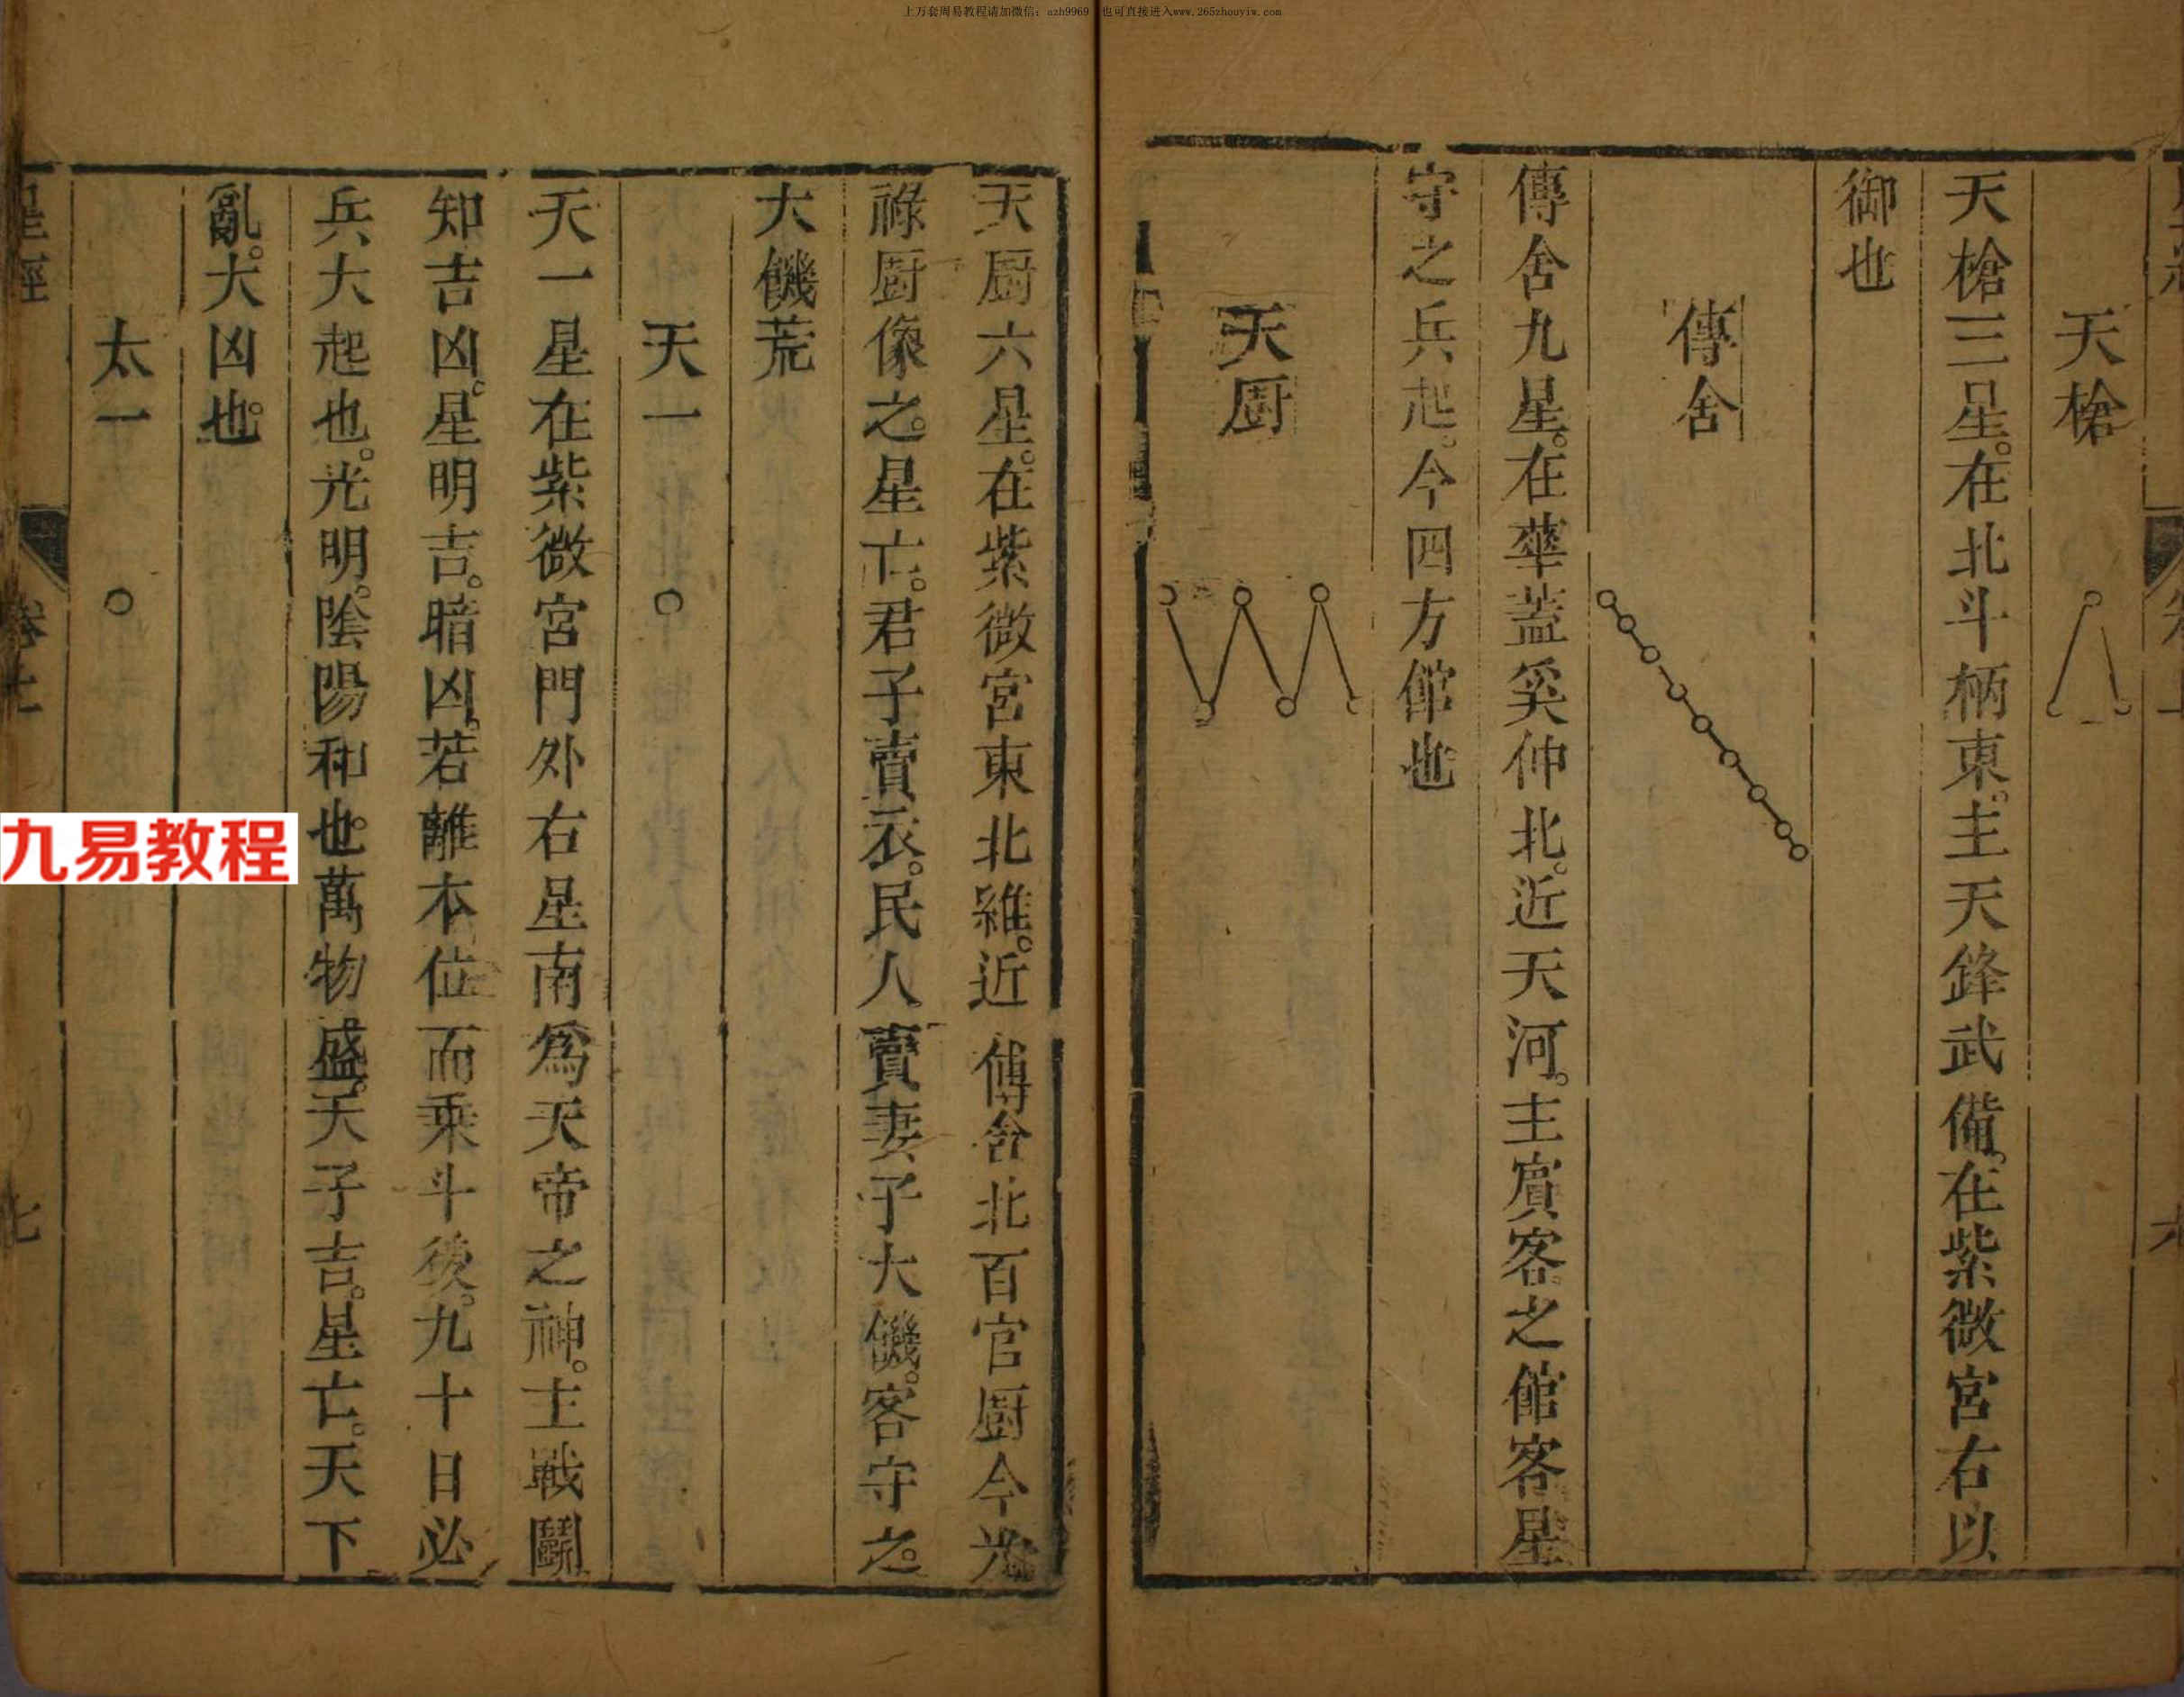 上万套周易教程请加微信：azh9969　也可直接进入www.265zhouyiw.com
天槍
天槍三星。在北斗柄東。主天鋒武備。在紫微宮右以
御也
傳舍
傳舍九星。在華蓋奚仲北。近天河。主賓客之館客星
守之兵起。今四方館也
天厨
天厨六星。在紫微宮東北維。近傳舍北百官厨今光
祿厨像之。星亡。君子賣衣。民人賣妻子大饑。客守之。
大饑荒
天一
天一星在紫微宮門外右星南爲天帝之神。主戰鬪
知吉凶。星明吉。暗凶。若離本位而乘斗後。九十日必
兵大起也。光明。陰陽和也。萬物盛。天子吉。星亡。天下
亂。大凶也。
太一
星經
七
九易教程